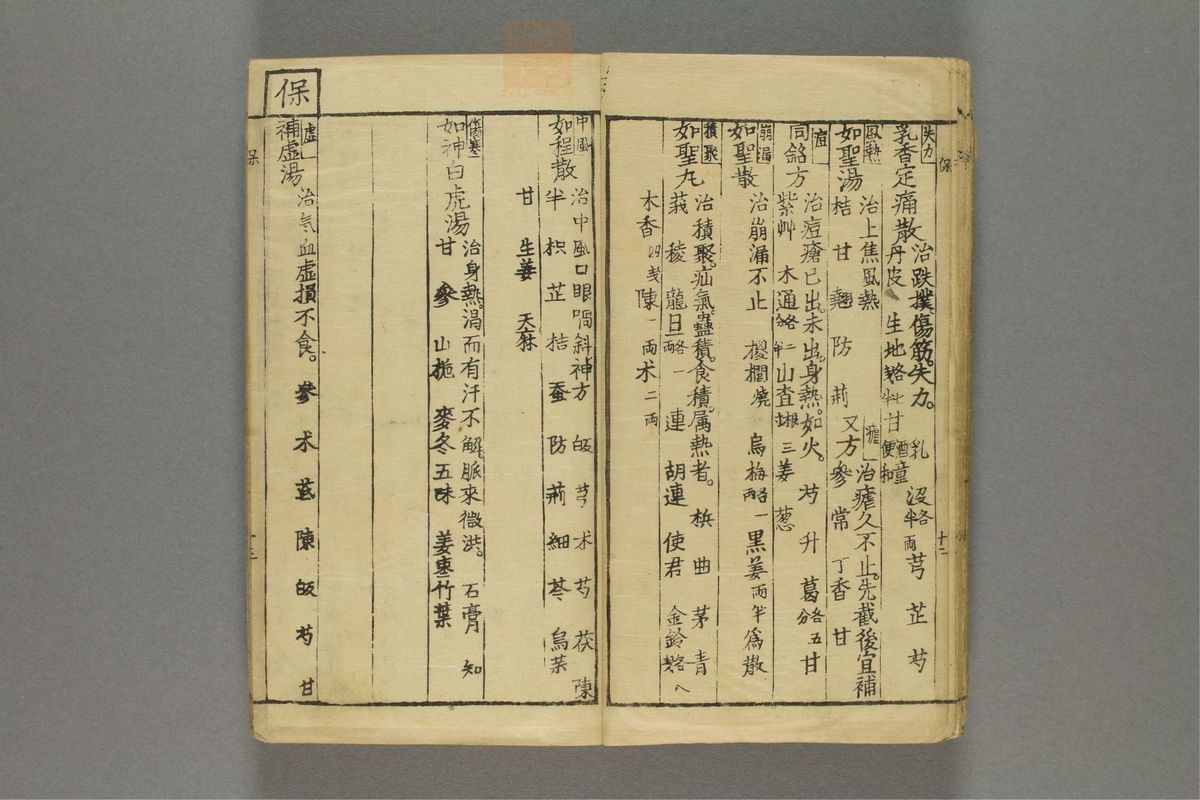 失力
乳香定痛散
治跌撲傷筋失力。 乳 沒各半兩 芎 芷 芍
丹皮 生地 甘 酒童便和
風熱
如聖湯
治上焦風熱
桔 甘 翹 防 荊
瘧
又方
治瘧久不止。先截後宜補
參 常 丁香 甘
痘
同銘方
治痘瘡已出。未出。身熱。如火。 芍 升 葛各五分 甘
紫艸 木通 山查 三 姜 葱
崩漏
如聖散
治崩漏不止 椶櫚燒 烏梅各一兩 黑姜兩半 爲散
積聚
如聖丸
治積聚。疝氣。蠱積。食積。属熱者。 梹 曲 茅 青
莪 稜 龍旦各一兩 連 胡連 使君 金鈴各八戔
木香四戔 陳一兩 术二兩
保
十二
中風
如程散
治中風口眼喎斜神方 皈 芎 术 芍 茯 陳
半 枳 芷 桔 蚕 防 荊 細 芩 烏荣
甘 生姜 天麻
傷寒
如神白虎湯
治身熱。渴而有汗不解。脈來微洪。 石膏 知
甘 參 山梔 麥冬 五味 姜 枣 竹葉
保
虛
補虛湯
治氣血虛損不食。 參 术 茋 陳 皈 芍 甘
保
十三